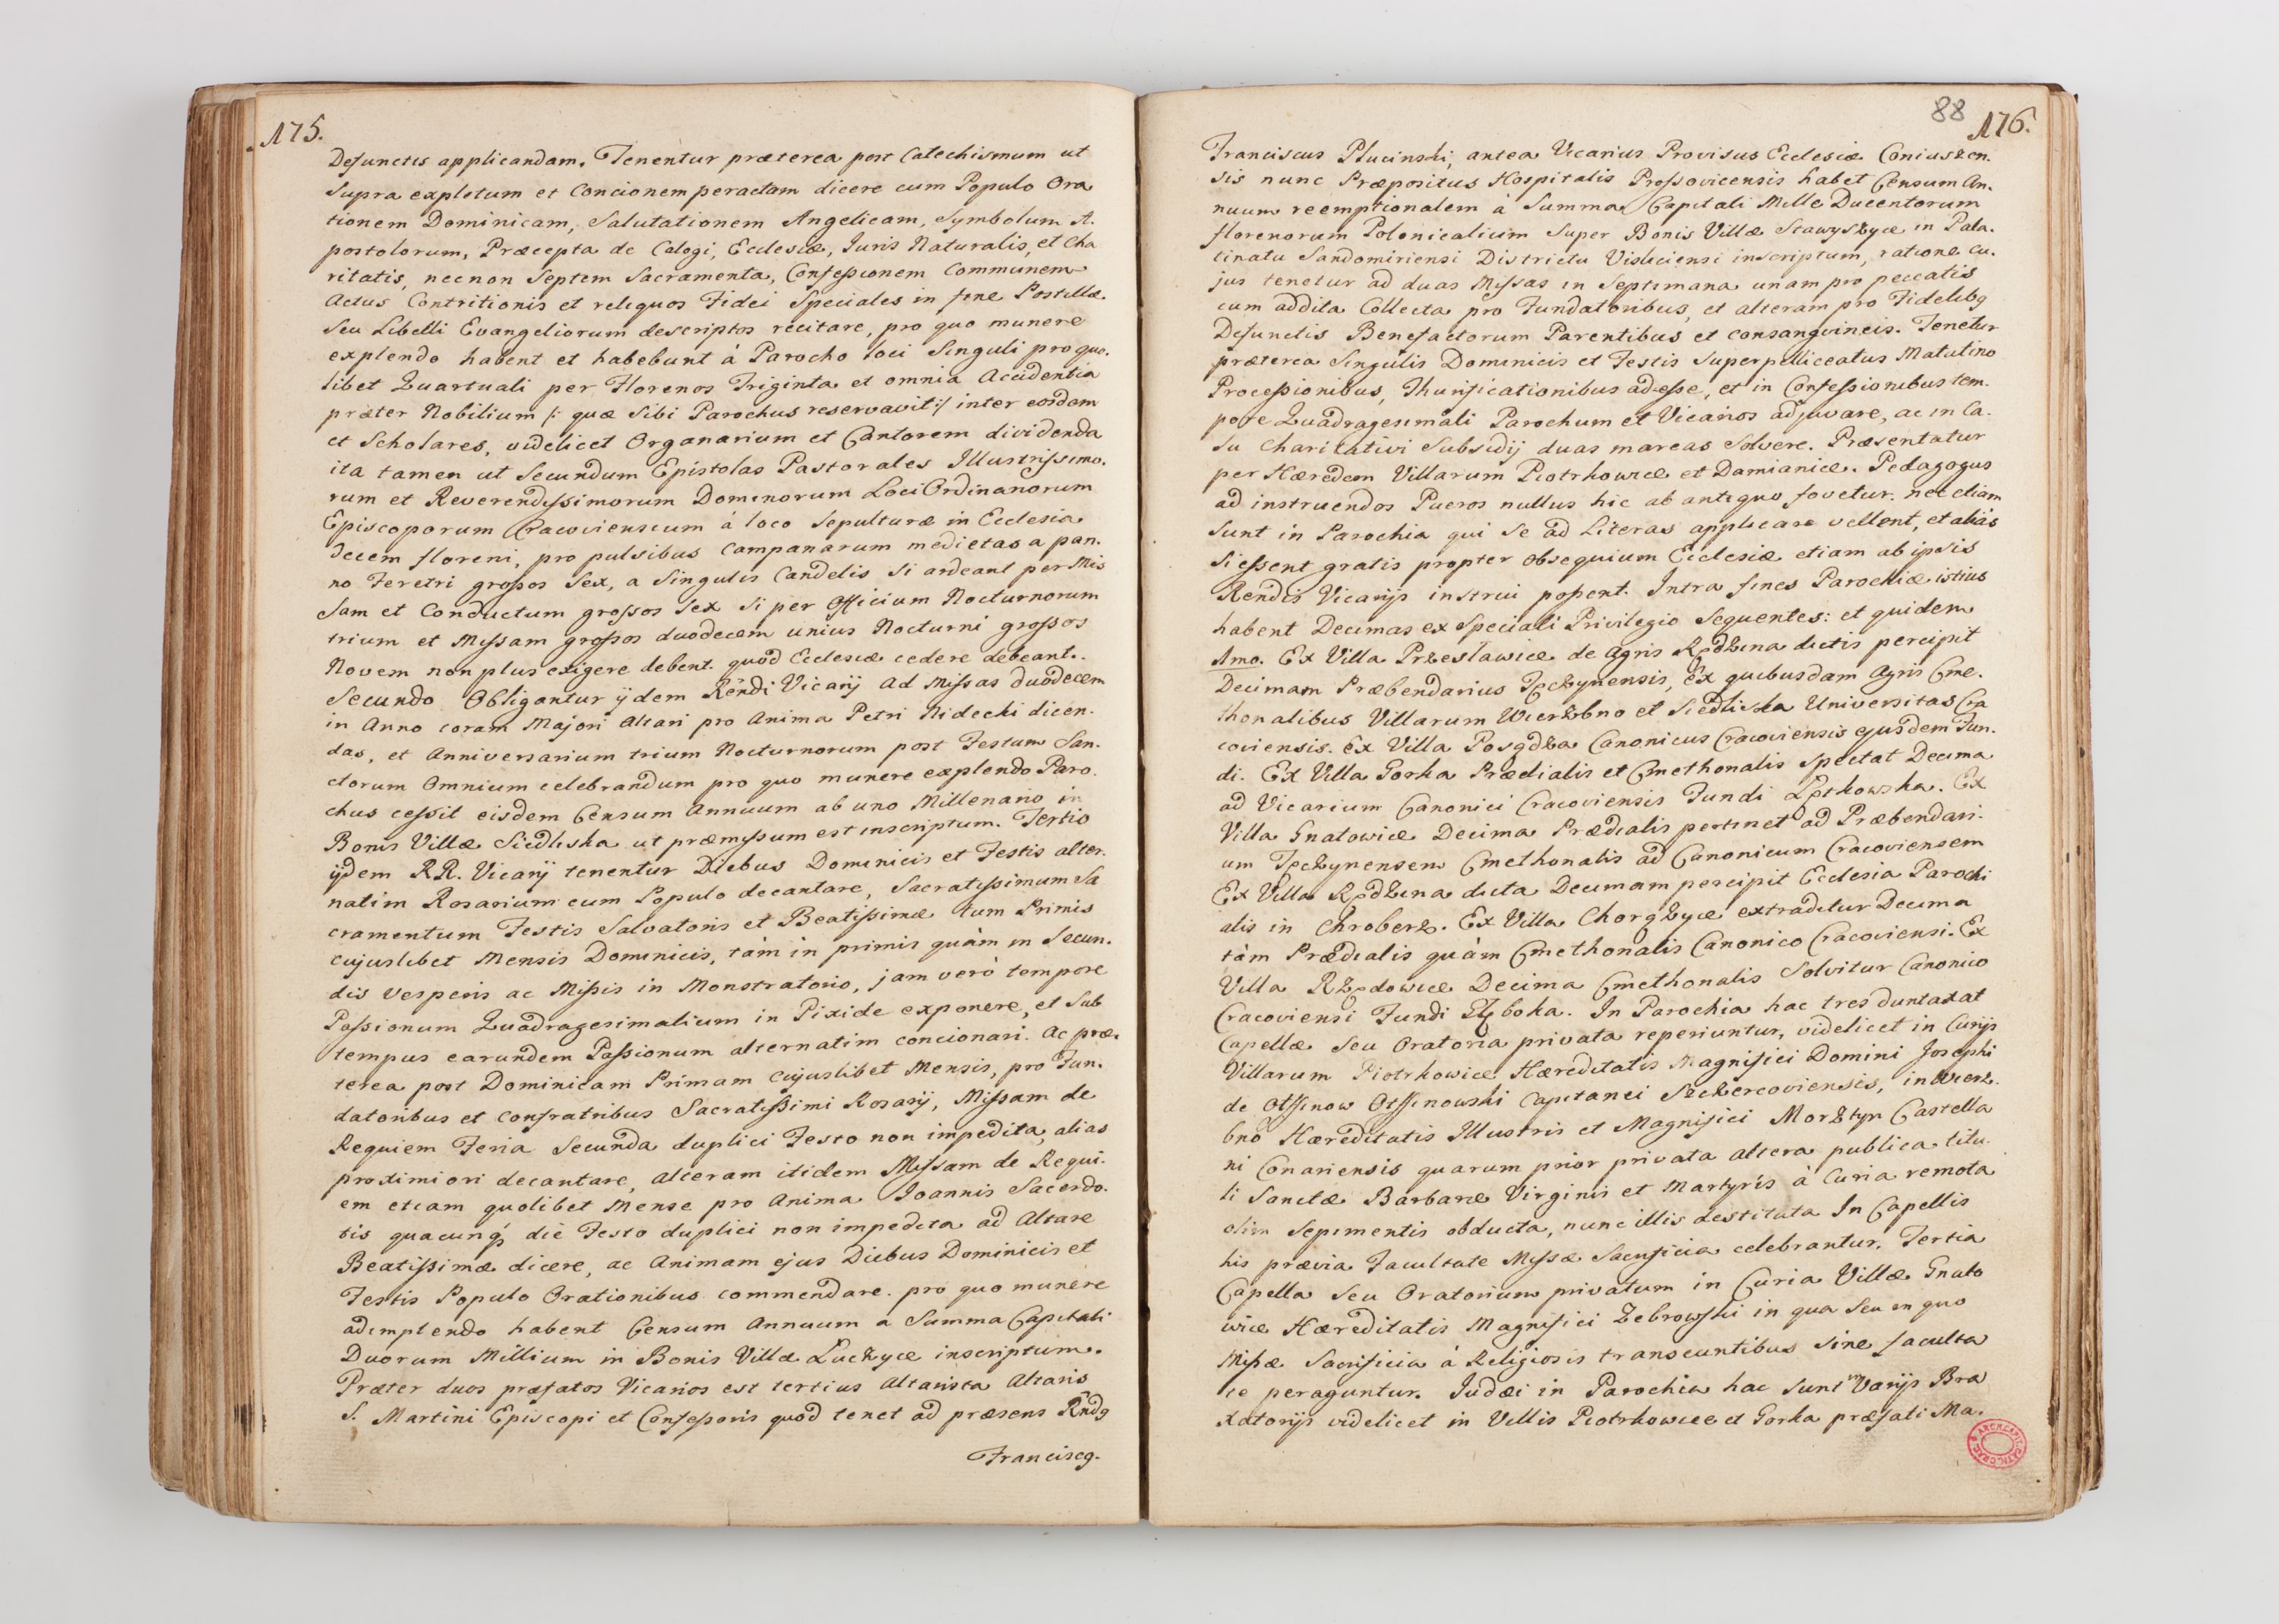 175.
Defunctis applicandam. Tenentur præterea post Catechismum ut
supra expletum et Concionem peractam dicere cum Populo Ora
tionem Dominicam, Salutationem Angelicam, Symbolum A.
postolorum, Præcepta de Calogi, Ecclesiæ, Juris Naturalis, et Cha
ritatis, necnon Septem Sacramenta, Confessionem Communem
Actus Contritionis et reliquos Fidei Speciales in fine Postillæ
seu Libelli Evangeliorum descriptos recitare, pro quo munere
explendo habent et habebunt à Parocho loci Singuli pro quo.
libet Quartuali per Florenos Triginta et omnia Accidentia
præter Nobilium /: quæ sibi Parochus reservavit :/ inter eosdem
et Scholares, videlicet Organarium et Cantorem dividenda
ita tamen ut Secundum Epistolas Pastorales Illustrissimo.
rum et Reverendissimorum Dominorum Loci Ordinariorum
Episcoporum Cracoviensium à loco Sepulturæ in Ecclesia
decem floreni, pro pulsibus Campanarum medietas a pan.
no Feretri grossos Sex, a Singulis Candelis si ardeant per Mis
sam et Conductum grossos Sex si per Officium Nocturnorum
trium et Missam grossos duodecem unius Nocturni grossos
Novem non plus exigere debent. quod Ecclesiæ cedere debeant.
Secundo Obligantur ijdem Rendi Vicarij ad Missas duodecem
in Anno coram Majori Altari pro Anima Petri Nidecki dicen.
das, et Anniversarium trium Nocturnorum post Festum San.
ctorum Omnium celebrandum pro quo munere explendo Paro.
chus cessit eisdem Censum Annuum ab uno Millenario in
Bonis Villæ Siedliska ut præmissum est inscriptum. Tertio
ijdem RR. Vicarij tenentur Diebus Dominicis et Festis alter.
natim Rosarium cum Populo decantare, Sacratissimum Sa
cramentum Festis Salvatoris et Beatissimæ tum Primis
cujuslibet Mensis Dominicis, tàm in primis quàm in Secun.
dis Vesperis ac Missis in Monstratorio, jam verò tempore
Passionum Quadragesimalium in Pixide exponere, et sub
tempus earundem Passionum alternatim concionari. Ac præ.
terea post Dominicam Primam cujuslibet Mensis, pro Fun.
datoribus et Confratribus Sacratissimi Rosarij, Missam de
Requiem Feria Secunda duplici Festo non impedita, alias
proximiori decantare, alteram itidem Missam de Requi.
em etiam quolibet Mense pro Anima Joannis Sacerdo.
tis quacunq, die Festo duplici non impedita ad Altare
Beatissimæ dicere, ac Animam ejus Diebus Dominicis et
Festis Populo Orationibus commendare. pro quo munere
adimplendo habent Censum Annuum a Summa Capitali
Duorum Millium in Bonis Villæ Luczyce inscriptum.
Præter duos præfatos Vicarios est tertius Altarista Altaris
S. Martini Episcopi et Confessoris quod tenet ad præsens Rndg
Franciscg.
88 176.
Franciscus Plucinski, antea Vicarius Provisus Ecclesiæ Coniuszen.
sis nunc Præpositus Hospitalis Prossovicensis habet Censum An.
nuum reemptionalem à Summa Capitali Mille Ducentorum
florenorum Polonicalium Super Bonis Villæ Stawyszyce in Pala.
tinatu Sandomiriensi Districtu Visliciensi inscriptum, ratione cu.
jus tenetur ad duas Missas in Septimana unam pro peccatis
cum addita Collecta pro Fundatoribus, et alteram pro Fidelibg
Defunctis Benefactorum Parentibus et consangvineis. Tenetur
præterea Singulis Dominicis et Festis Superpelliceatus Matutino
Processionibus, Thurificationibus adesse, et in Confessionibus tem.
pore Quadragesimali Parochum et Vicarios adjuvare, ac in Ca.
su Charitativi Subsidij duas marcas Solvere. Præsentatur
per Hæredem Villarum Piotrkowice et Damianice. Pedagogus
ad instruendos Pueros nullus hic ab antiquo fovetur. nec etiam
sunt in Parochia qui se ad Literas applicare vellent, et aliàs
si essent gratis propter obsequium Ecclesiæ etiam ab ipsis
Rendis Vicarijs instrui possent. Intra fines Parochiæ istius
habent Decimas ex Speciali Privilegio Sequentes: et quidem
1mo. Ex Villa Przesławice de Agris Rędzina dictis percipit
Decimam Præbendarius Tęczynensis, Ex quibusdam Agris Cme.
thonalibus Villarum Wierzbno et Siedliska Universitas Cra
coviensis. Ex Villa Posądza Canonicus Cracoviensis ejusdem Fun.
di. Ex Villa Gorka Prædialis et Cmethonalis spectat Decima
ad Vicarium Canonici Cracoviensis Fundi Lętkowska. Ex
Villa Gnatowice Decima Prædialis pertinet ad Præbendari.
um Tęczynensem Cmethonalis ad Canonicum Cracoviensem
Ex Villa Rędzina dicta Decimam percipit Ecclesia Parochi
alis in Chroberz. Ex Villa Chorązyce extraditur Decima
tàm Prædialis quàm Cmethonalis Canonico Cracoviensi. Ex
Villa Rzędowice Decima Cmethonalis Solvitur Canonico
Cracoviensi Fundi Głęboka. In Parochia hac tres duntaxat
Capellæ seu Oratoria privata reperiuntur, videlicet in Curijs
Villarum Piotrkowice Hæreditatis Magnifici Domini Josephi
de Otffinow Otffinowski Capitanei Szczercoviensis, in Wierz.
bno Hæreditatis Illustris et Magnifici Morsztyn Castella
ni Conariensis quarum prior privata altera publica titu
li Sanctæ Barbaræ Virginis et Martyris à Curia remota
olim Sepimentis obducta, nunc illis destituta In Capellis
his prævia Facultate Missæ Sacrificia celebrantur. Tertia
Capella seu Oratorium privatum in Curia Villæ Gnato
wice Hæreditatis Magnifici Zebrowski in qua seu in quo
Missæ Sacrificia à Religiosis transeuntibus sine faculta
te peraguntur. Judæi in Parochia hac sunt in Varijs Bra
xatorijs videlicet in Villis Piotrkowice et Gorka præfati Ma.